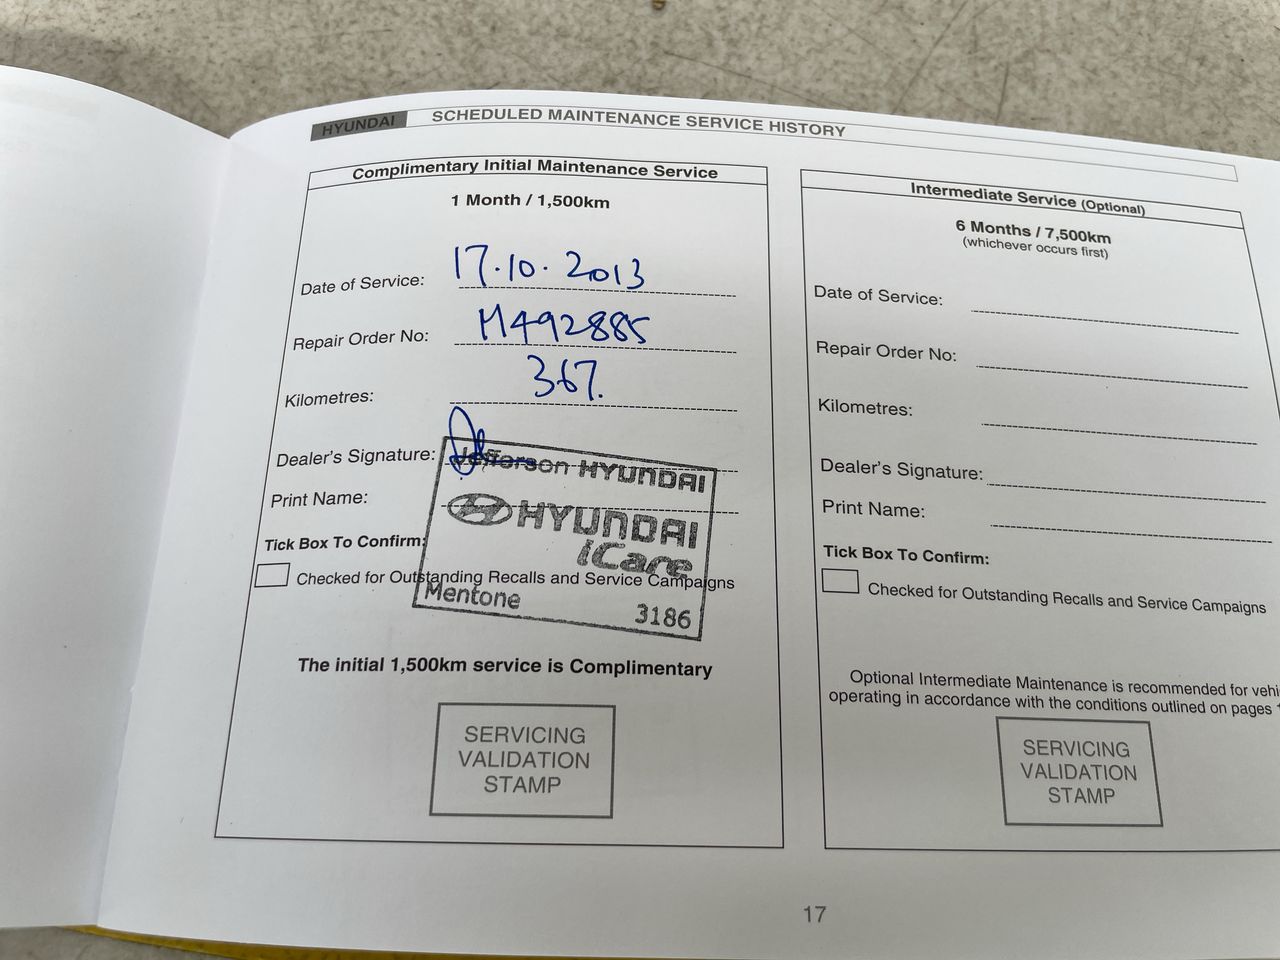 HYUNDAI SCHEDULED MAINTENANCE SERVICE HISTORY
Complimentary Initial Maintenance Service
1 Month / 1,500km
Date of Service: 17.10.2013
Repair Order No: M492885
Kilometres: 367.
Dealer's Signature:
Print Name:
Jefferson HYUNDAI
HYUNDAI
iCare
Mentone 3186
Tick Box To Confirm:
Checked for Outstanding Recalls and Service Campaigns
The initial 1,500km service is Complimentary
SERVICING
VALIDATION
STAMP
Intermediate Service (Optional)
6 Months / 7,500km
(whichever occurs first)
Date of Service:
Repair Order No:
Kilometres:
Dealer's Signature:
Print Name:
Tick Box To Confirm:
Checked for Outstanding Recalls and Service Campaigns
Optional Intermediate Maintenance is recommended for
operating in accordance with the conditions outlined on pages
SERVICING
VALIDATION
STAMP
17